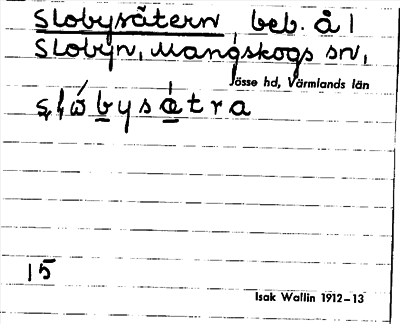 Slobysätern, beb. å 1
Slobyn, Mangskogs sn,
Jösse hd, Värmlands län
15
Isak Wallin 1912–13